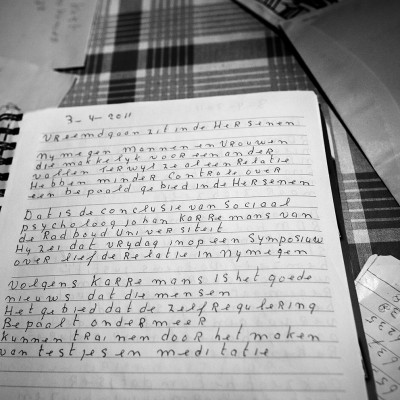 3-4-2011
VReemdgaan zit in de HeRsenen
nymegen mannen en VRouwen
die makkelyk VooR een andeR
vallen teRwyl ze al een Relatie
Hebben mindeR Controle oveR
een bepaald gebied in de HeRsenen
Dat is de conclusie van Sociaal
psycholoog Johan KaRRemans van
de Radboud UniveRsiteit
Hy zei dat VRydag in op een Symposium
oveR liefdeRelatie in nymegen
Volgens KaRRemans is het goede
nieuws dat die mensen
Het gebied dat de zelf ReguleRing
Bepaalt ondeR meeR
kunnen tRainen dooR het maken
van testjes en meditatie